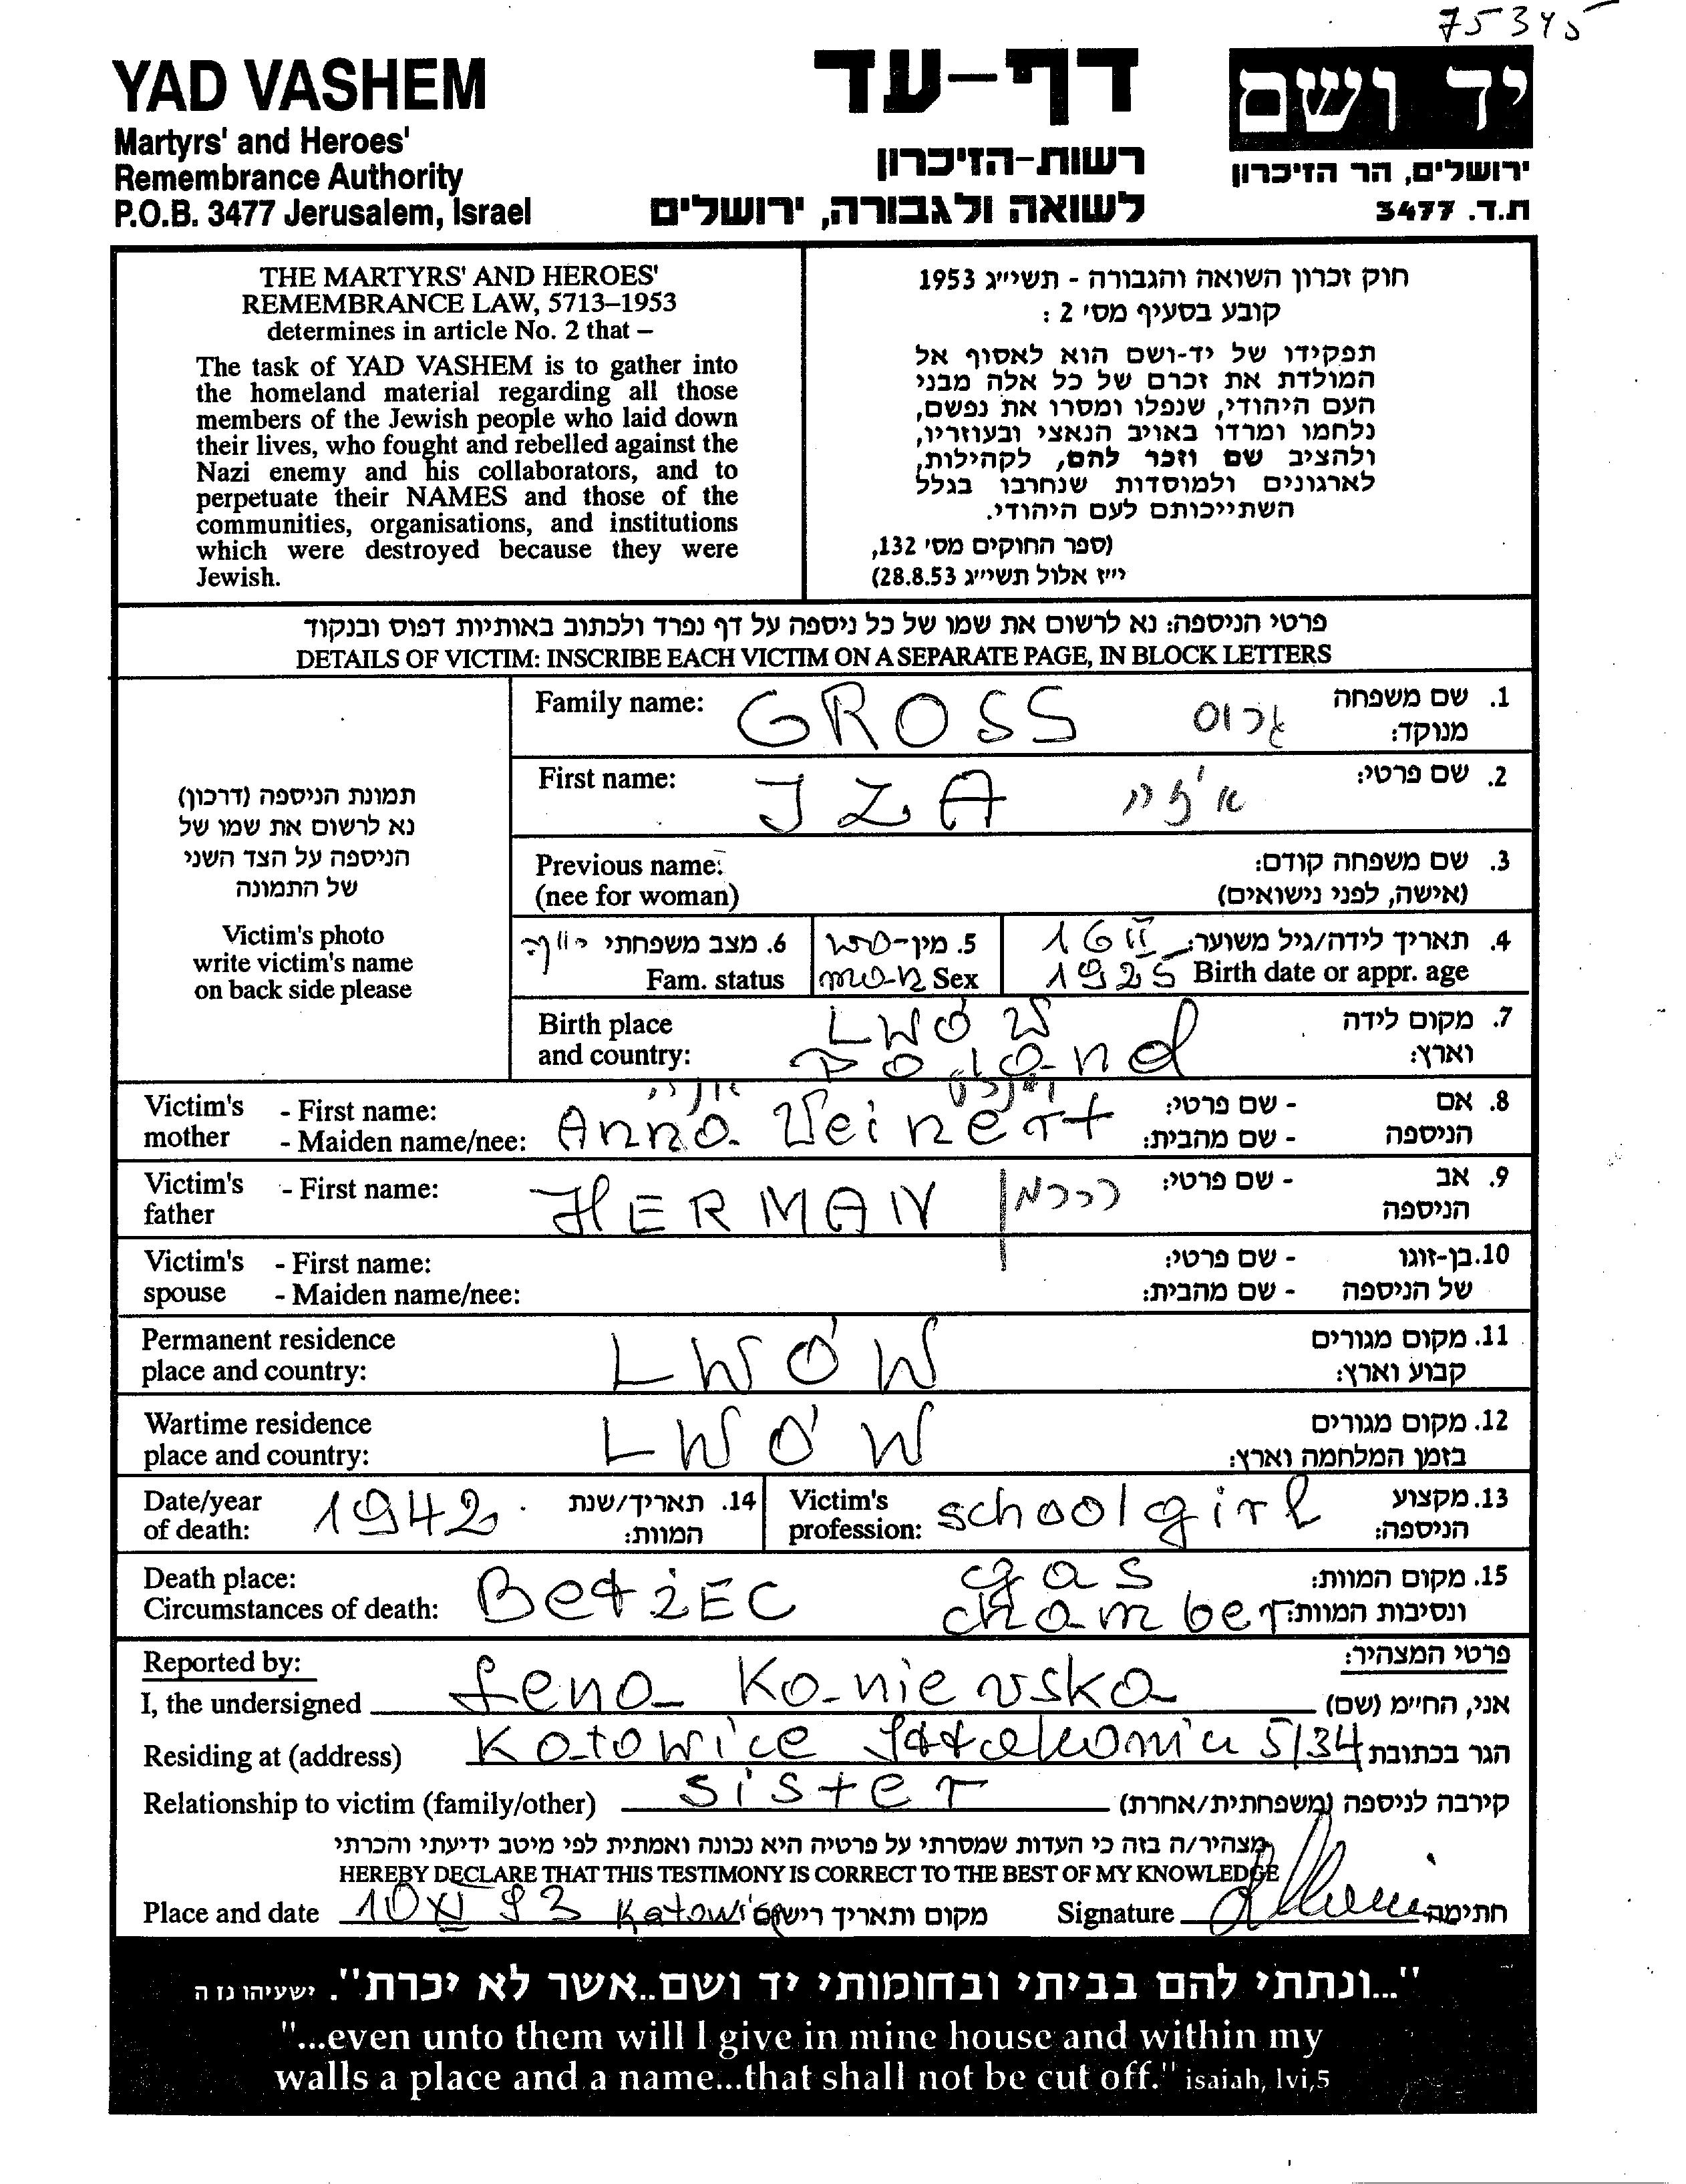 75345
YAD VASHEM
Martyrs' and Heroes'
Remembrance Authority
P.O.B. 3477 Jerusalem, Israel
דף-עד
רשות-הזיכרון
לשואה ולגבורה, ירושלים
יד ושם
ירושלים, הר הזיכרון
ת.ד. 3477
THE MARTYRS' AND HEROES'
REMEMBRANCE LAW, 5713–1953
determines in article No. 2 that –
The task of YAD VASHEM is to gather into
the homeland material regarding all those
members of the Jewish people who laid down
their lives, who fought and rebelled against the
Nazi enemy and his collaborators, and to
perpetuate their NAMES and those of the
communities, organisations, and institutions
which were destroyed because they were
Jewish.
חוק זכרון השואה והגבורה - תשי״ג 1953
קובע בסעיף מס׳ 2 :
תפקידו של יד-ושם הוא לאסוף אל
המולדת את זכרם של כל אלה מבני
העם היהודי, שנפלו ומסרו את נפשם,
נלחמו ומרדו באויב הנאצי ובעוזריו,
ולהציב שם וזכר להם, לקהילות,
לארגונים ולמוסדות שנחרבו בגלל
השתייכותם לעם היהודי.
(ספר החוקים מס׳ 132,
י״ז אלול תשי״ג 28.8.53)
פרטי הניספה: נא לרשום את שמו של כל ניספה על דף נפרד ולכתוב באותיות דפוס ובנקוד
DETAILS OF VICTIM: INSCRIBE EACH VICTIM ON A SEPARATE PAGE, IN BLOCK LETTERS
תמונת הניספה (דרכון)
נא לרשום את שמו של
הניספה על הצד השני
של התמונה
Victim's photo
write victim's name
on back side please
Family name: GROSS גרוס 1. שם משפחה
מנוקד:
First name: IZA איזה 2. שם פרטי:
Previous name: 3. שם משפחה קודם:
(nee for woman) (אישה, לפני נישואים)
6. מצב משפחתי 5. מין-wo 16 II 4. תאריך לידה/גיל משוער:
Fam. status man Sex 1925 Birth date or appr. age
Birth place LWÓW 7. מקום לידה
and country: Poland וארץ:
Victim's - First name: - שם פרטי: 8. אם
mother - Maiden name/nee: Anna Veinert - שם מהבית: הניספה
Victim's - First name: HERMAN הרמן - שם פרטי: 9. אב
father הניספה
Victim's - First name: - שם פרטי: 10. בן-זוגו
spouse - Maiden name/nee: - שם מהבית: של הניספה
Permanent residence LWÓW 11. מקום מגורים
place and country: קבוע וארץ:
Wartime residence LWÓW 12. מקום מגורים
place and country: בזמן המלחמה וארץ:
Date/year 1942 14. תאריך/שנת Victim's schoolgirl 13. מקצוע
of death: המוות: profession: הניספה:
Death place: BełżEC gas 15. מקום המוות:
Circumstances of death: chamber ונסיבות המוות:
Reported by: פרטי המצהיר:
I, the undersigned Lena Kanievska אני, החי״מ (שם)
Residing at (address) Katowice 5/34 הגר בכתובת
Relationship to victim (family/other) sister קירבה לניספה (משפחתית/אחרת)
מצהיר/ה בזה כי העדות שמסרתי על פרטיה היא נכונה ואמתית לפי מיטב ידיעתי והכרתי
HEREBY DECLARE THAT THIS TESTIMONY IS CORRECT TO THE BEST OF MY KNOWLEDGE
Place and date 10 XI 93 Katowice מקום ותאריך רישום Signature חתימה
"...ונתתי להם בביתי ובחומותי יד ושם..אשר לא יכרת". ישעיהו נז ה
"...even unto them will I give in mine house and within my
walls a place and a name...that shall not be cut off." isaiah, lvi,5